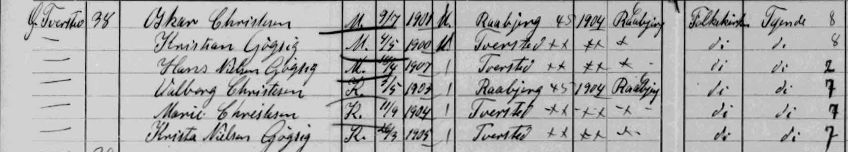 G. Tversted 38 Oskar Christesen M. 9/7 1901 U. Raabjerg 45 1904 Raabjerg Folkekirken Tyende 8
— Kristian Gøgsig M. 4/5 1900 U Tversted ×× ×× × di di 8
— Hans Nielsen Gøgsig M. 1907 1 Tversted ×× ×× × - di di 2
— Valborg Christesen K. 1903 1 Raabjerg 45 1904 Raabjerg di di 7
— Marie Christesen K. 11/9 1904 1 Tversted ×× ×× × - di di 7
— Krista Nielsen Gøgsig K. 1905 1 Tversted ×× ×× ×- di di 7